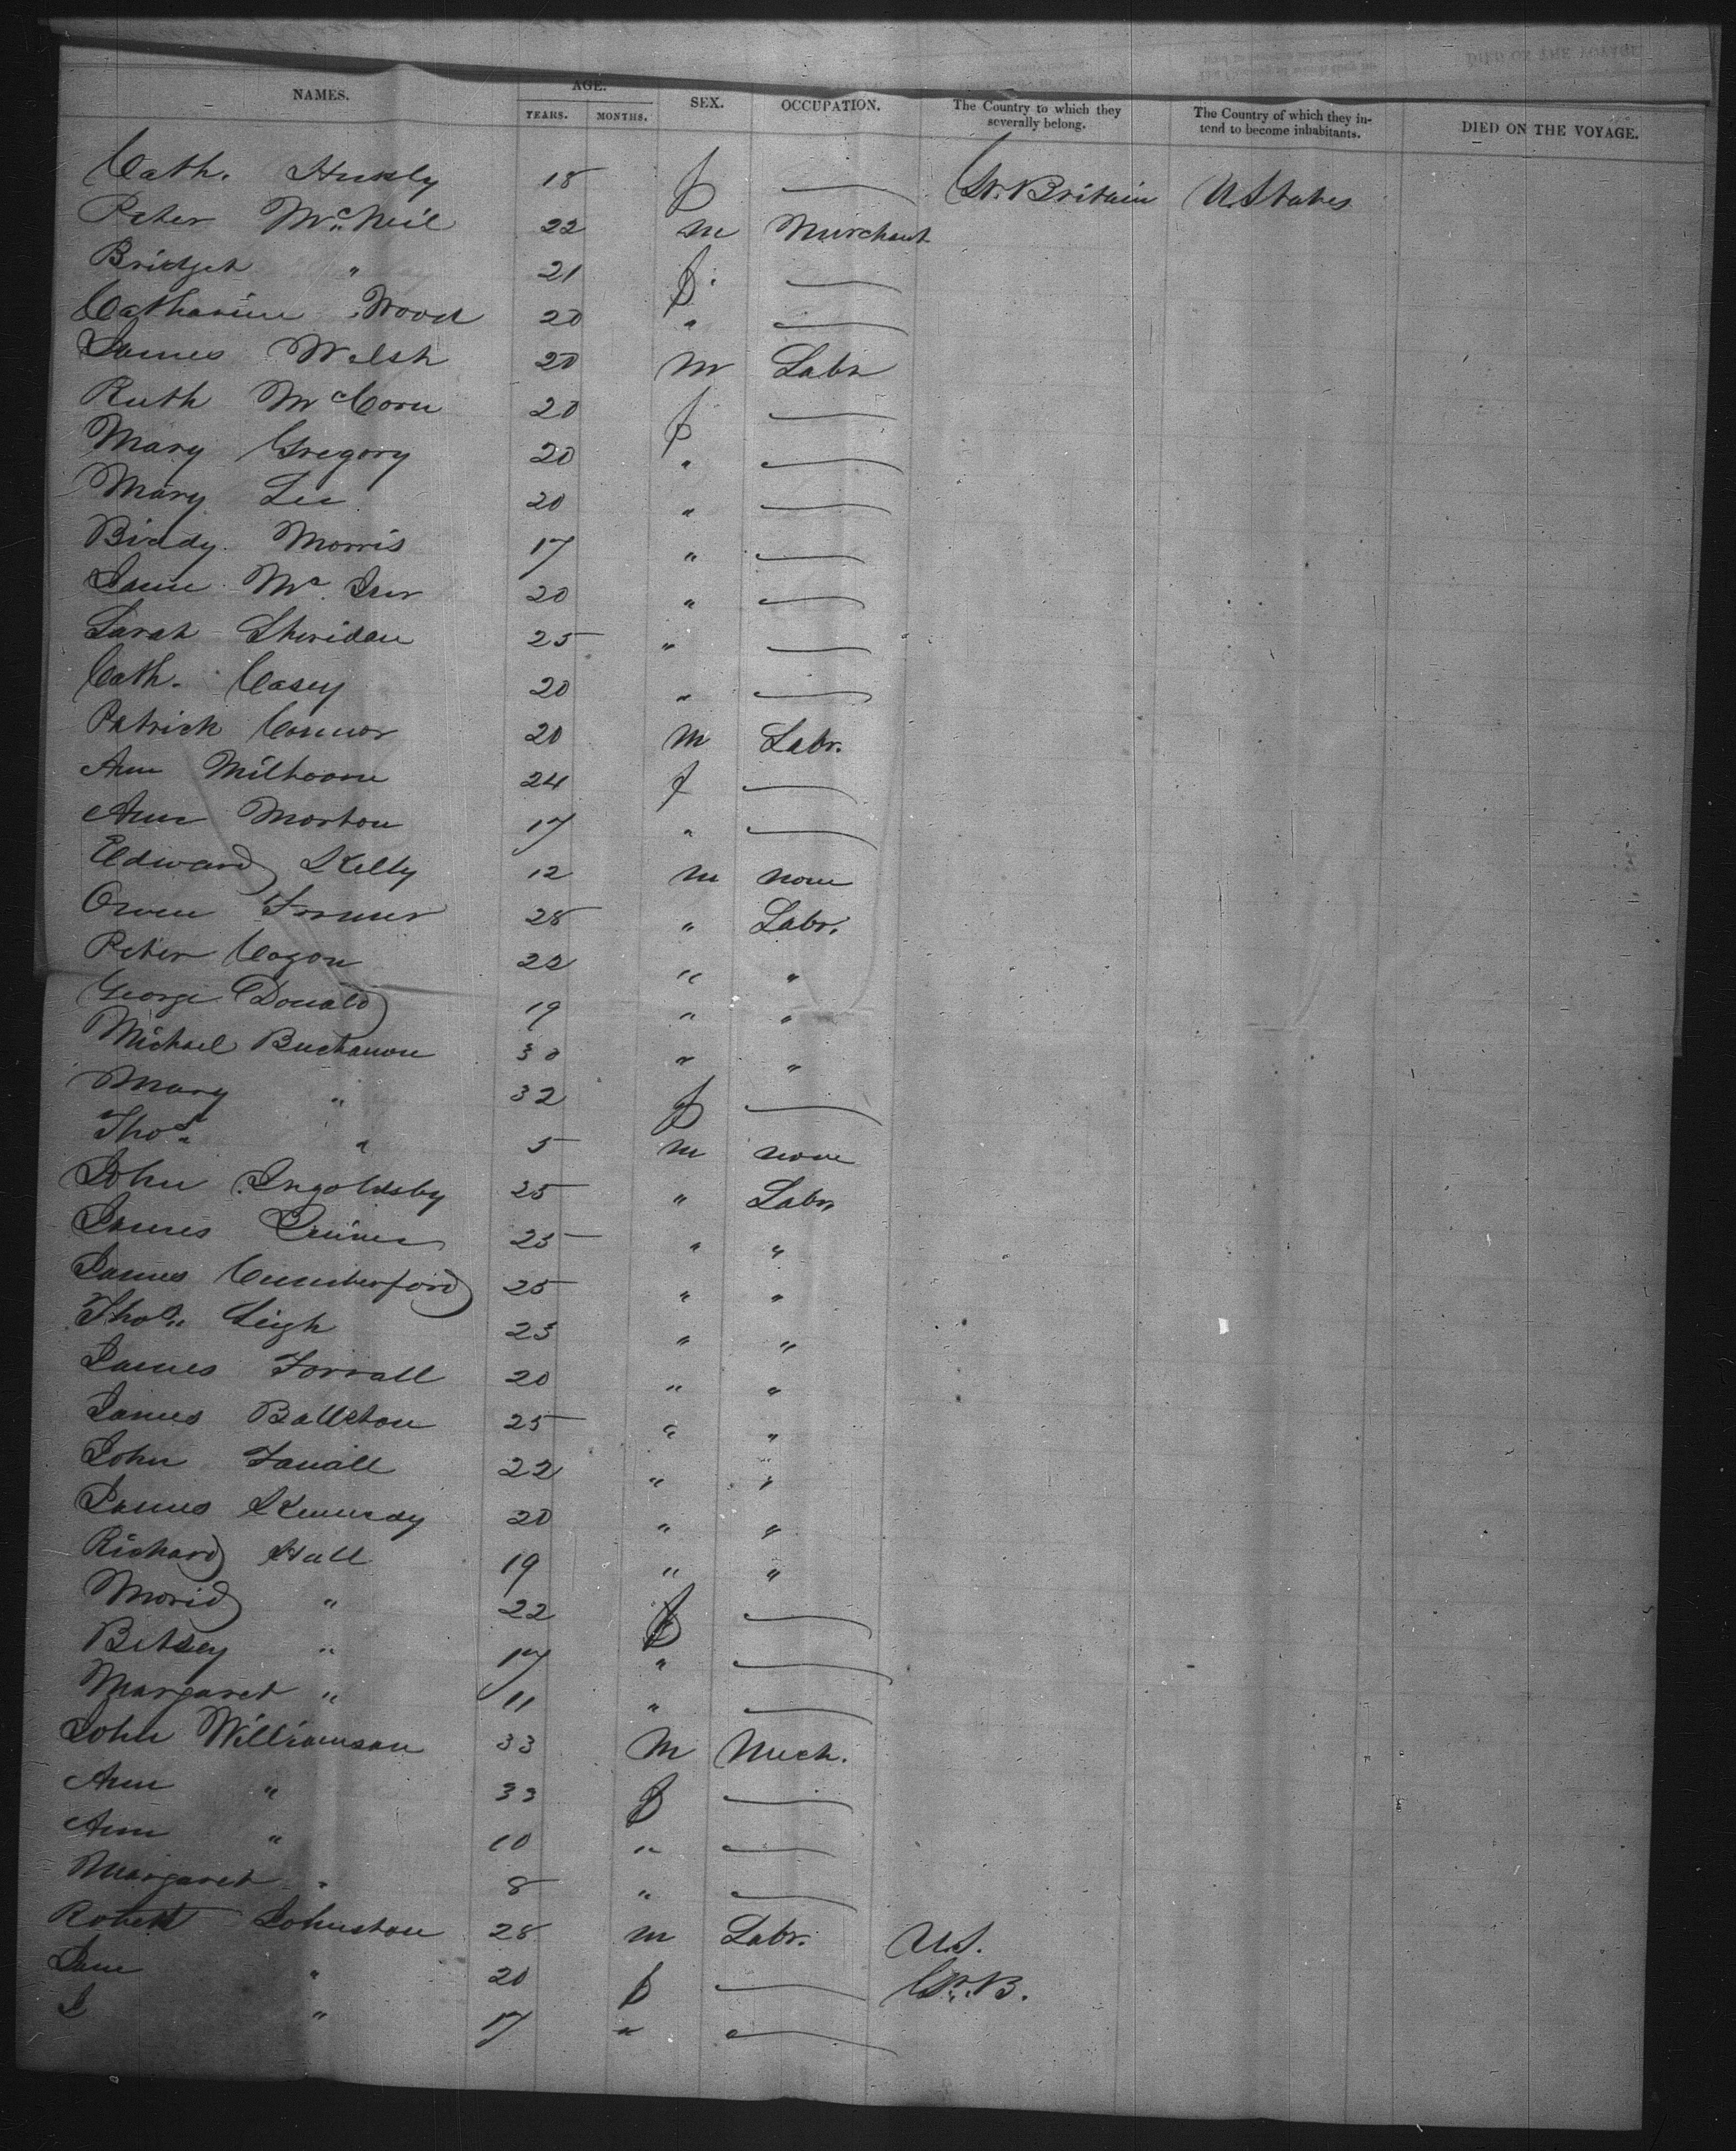 NAMES. AGE. SEX. OCCUPATION. The Country to which they severally belong. The Country of which they intend to become inhabitants. DIED ON THE VOYAGE.
YEARS. MONTHS.
Cath. 18 f — Gr. Britain U States
Peter McNeil 22 m Merchant
Bridget " 21 f —
Catharine Wood 20 " —
James Welsh 20 m Labr
Ruth McCorn 20 f —
Mary Gregory 20 " —
Mary Lee 20 " —
Biddy Morris 17 " —
Jane Mc 20 " —
Sarah Sheridan 25 " —
Cath. Casey 20 " —
Patrick Connor 20 m Labr.
Ann 24 f —
Ann Morton 17 " —
Edward Kelly 12 m none
Owen 28 " Labr.
Peter Cogon 22 " "
George Donald 19 " "
Michael 30 " "
Mary " 32 f —
Thos " 5 m none
John Ingoldsby 25 " Labr
James 25 " "
James Cumberford 25 " "
Thos Leigh 23 " "
James Forrall 20 " "
James 25 " "
John 22 " "
James Kennedy 20 " "
Richard Hall 19 " "
" 22 f —
Betsey " 17 " —
Margaret " 11 " —
John Williamson 33 m Mech.
Ann " 33 f —
Ann " 10 " —
Margaret " 8 " —
Robert Johnston 28 m Labr. U.S.
Jane " 20 f — Gr. B.
J " 17 " —